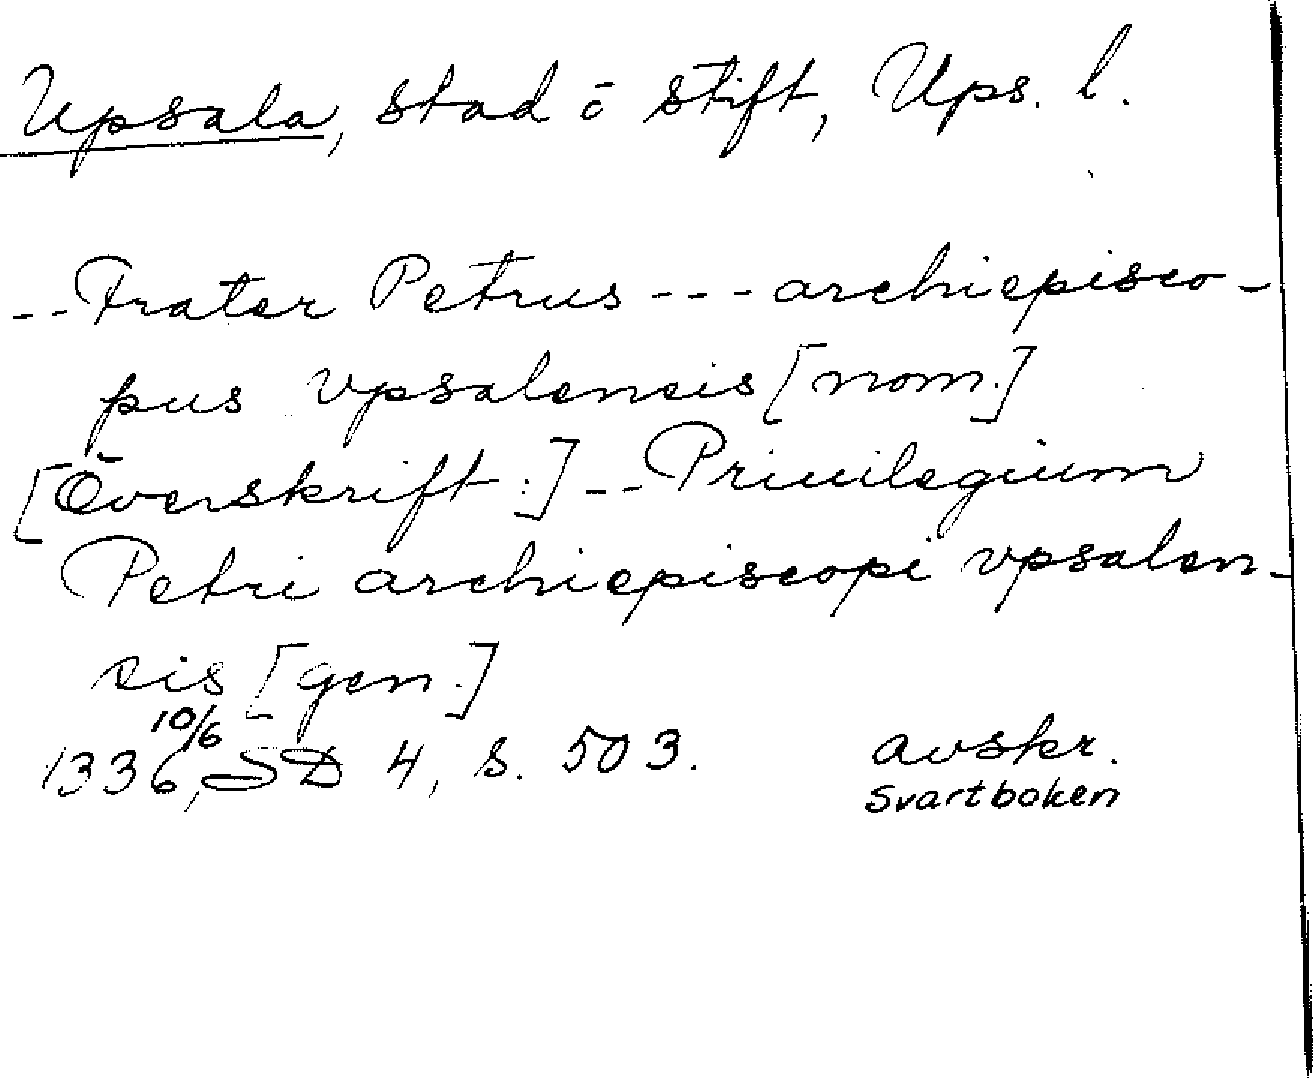 Upsala, stad ō stift, Ups. l.
--Frater Petrus --- archiepisco-
pus vpsalensis [nom.]
[Överskrift:]--Priuilegium
Petri archiepiscopi vpsalen-
sis [gen.]
10/6
1336, SD 4, s. 503. avskr.
Svartboken